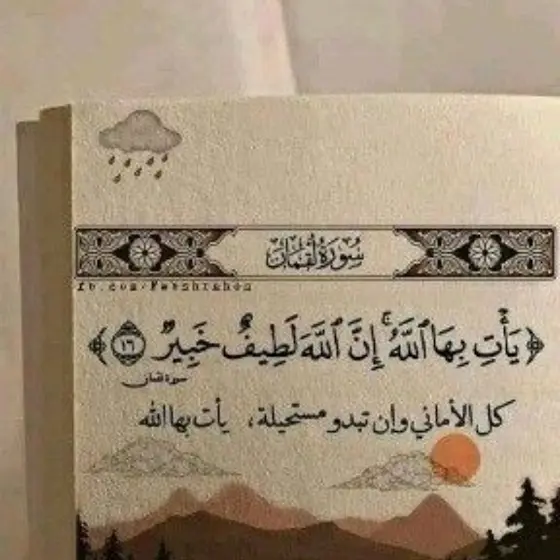 سُورَةُ لُقْمَان
﴿يَأْتِ بِهَا ٱللَّهُ ۚ إِنَّ ٱللَّهَ لَطِيفٌ خَبِيرٌ ١٦﴾
سورة لقمان
كل الأماني وإن تبدو مستحيلة، يأت بها الله